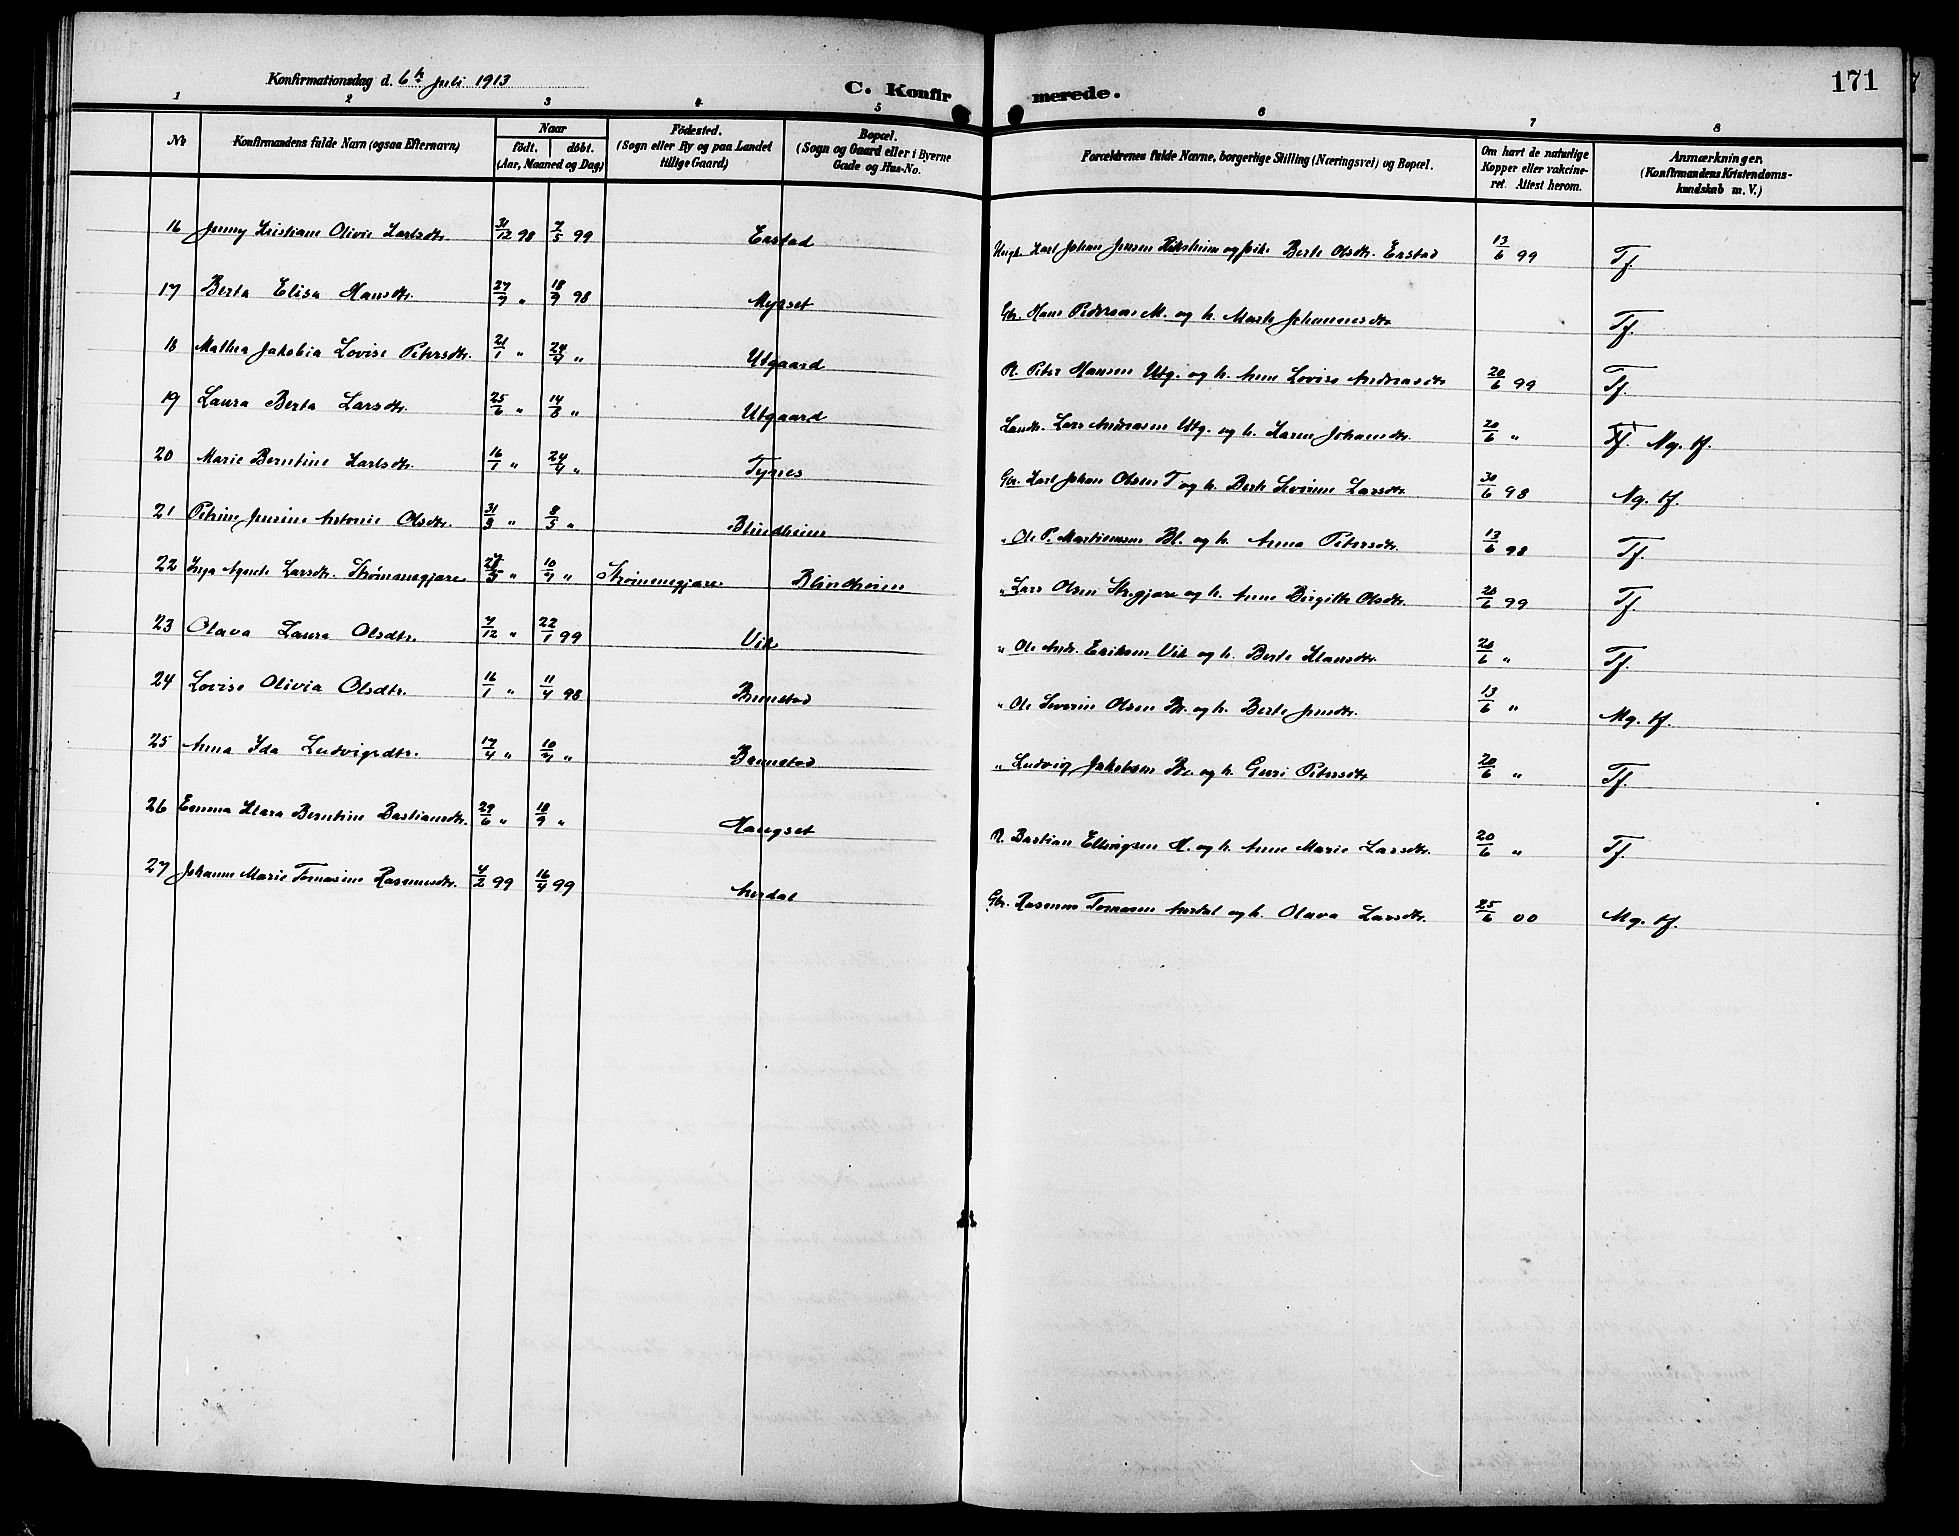 Konfirmationsdag d. 6te Juli 1913
C. Konfirmerede.
171
1 2 3 4 5 6 7 8
No
Konfirmandens fulde Navn (ogsaa Efternavn)
Naar
födt. döbt.
(Aar, Maaned og Dag)
Födested.
(Sogn eller By og paa Landet
tillige Gaard)
Bopæl.
(Sogn og Gaard eller i Byerne
Gade og Hus-No.
Forældrenes fulde Navne, borgerlige Stilling (Næringsvei) og Bopæl.
Om havt de naturlige
Kopper eller vakcine-
ret. Attest herom.
Anmærkninger.
(Konfirmandens Kristendoms-
kundskab m. V.)
16 Jenny Kristiane Olivie Karlsdtr. 31/12 98 7/5 99 Erstad Karl Johan Jensen og Berte Olsdtr. Erstad 13/6 99 Tf.
17 Berta Elisa Hansdtr. 27/7 " 18/9 98 Myrset Gbr. Hans Pedersen M. og h. Marte Johannesdtr 
Tf.
18 Mathea Jakobia Lovise Petersdtr. 21/1 " 24/4 " Utgaard R. Peter Hansen Utg. og h. Anne Lovise Andreasdtr 20/6 99 Tf.
19 Laura Berta Larsdtr. 25/6 " 14/8 " Utgaard Lars Andreasen Utg. og h. Karen Johansdtr. 20/6 " Tf. Mg. tf.
20 Marie Berntine Karlsdtr. 16/1 " 24/4 " Tynes Gbr. Karl Johan Olsen T og h. Berte Severine Larsdtr. 30/6 98 Mg. tf.
21 Petrine Jensine Antonie Olsdtr. 31/3 " 8/5 " Blindheim " Ole P. Martinussen Bl. og h. Anna Petersdtr. 13/6 98 Tf.
22 Inga Agnete Larsdtr. Strømmegjære " 10/7 " Strømmegjære. Blindheim " Lars Olsen Str.gjære og h. Anne Birgitte Olsdtr. 20/6 99 Tf.
23 Olava Laura Olsdtr. 7/12 " 22/1 99 Vik " Ole Andr. Eriksen Vik og h. Berte Klausdtr. 20/6 " Tf.
24 Lovise Olivia Olsdtr. 16/1 " 11/4 98 Brunstad " Ole Severin Olsen Br. og h. Berte Jensdtr. 13/6 " Mg. tf.
25 Anna Ida Ludvigsdtr. 17/4 " 10/7 " Brunstad " Ludvig Jakobsen Br. og h. Guri Petersdtr 20/6 " Tf.
26 Emma Klara Berntine Bastiansdtr. 29/6 " 18/9 " Haugset R. Bastian Ellingsen H. og h. Anne Marie Larsdtr. 20/6 " Tf.
27 Johanne Marie Tomasine Rasmusdtr. 4/2 99 16/4 99 Aursdal Gbr. Rasmus Tomasen Aursdal og h. Olava Larsdtr. 25/6 00 Mg. tf.